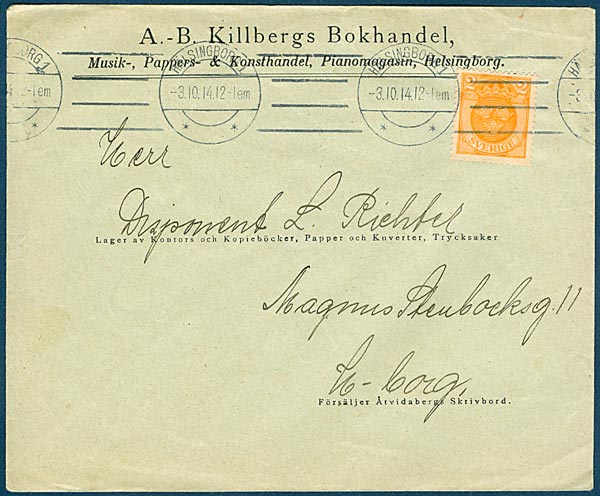 A.-B. Killbergs Bokhandel,
Musik-, Pappers- & Konsthandel, Pianomagasin, Helsingborg.
HELSINGBORG 1
-3.10.14.12-1em
HELSINGBORG 1
-3.10.14.12-1em
2 2
SVERIGE
Herr
Disponent L. Richter
Lager av Kontors och Kopieböcker, Papper och Kuverter, Trycksaker
Magnus Stenbocksg. 11
H-borg.
Försäljer Åtvidabergs Skrivbord.